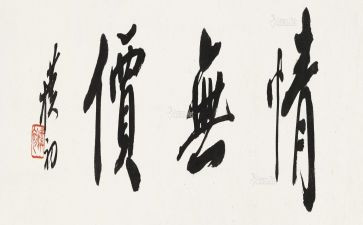 情無價
樸初